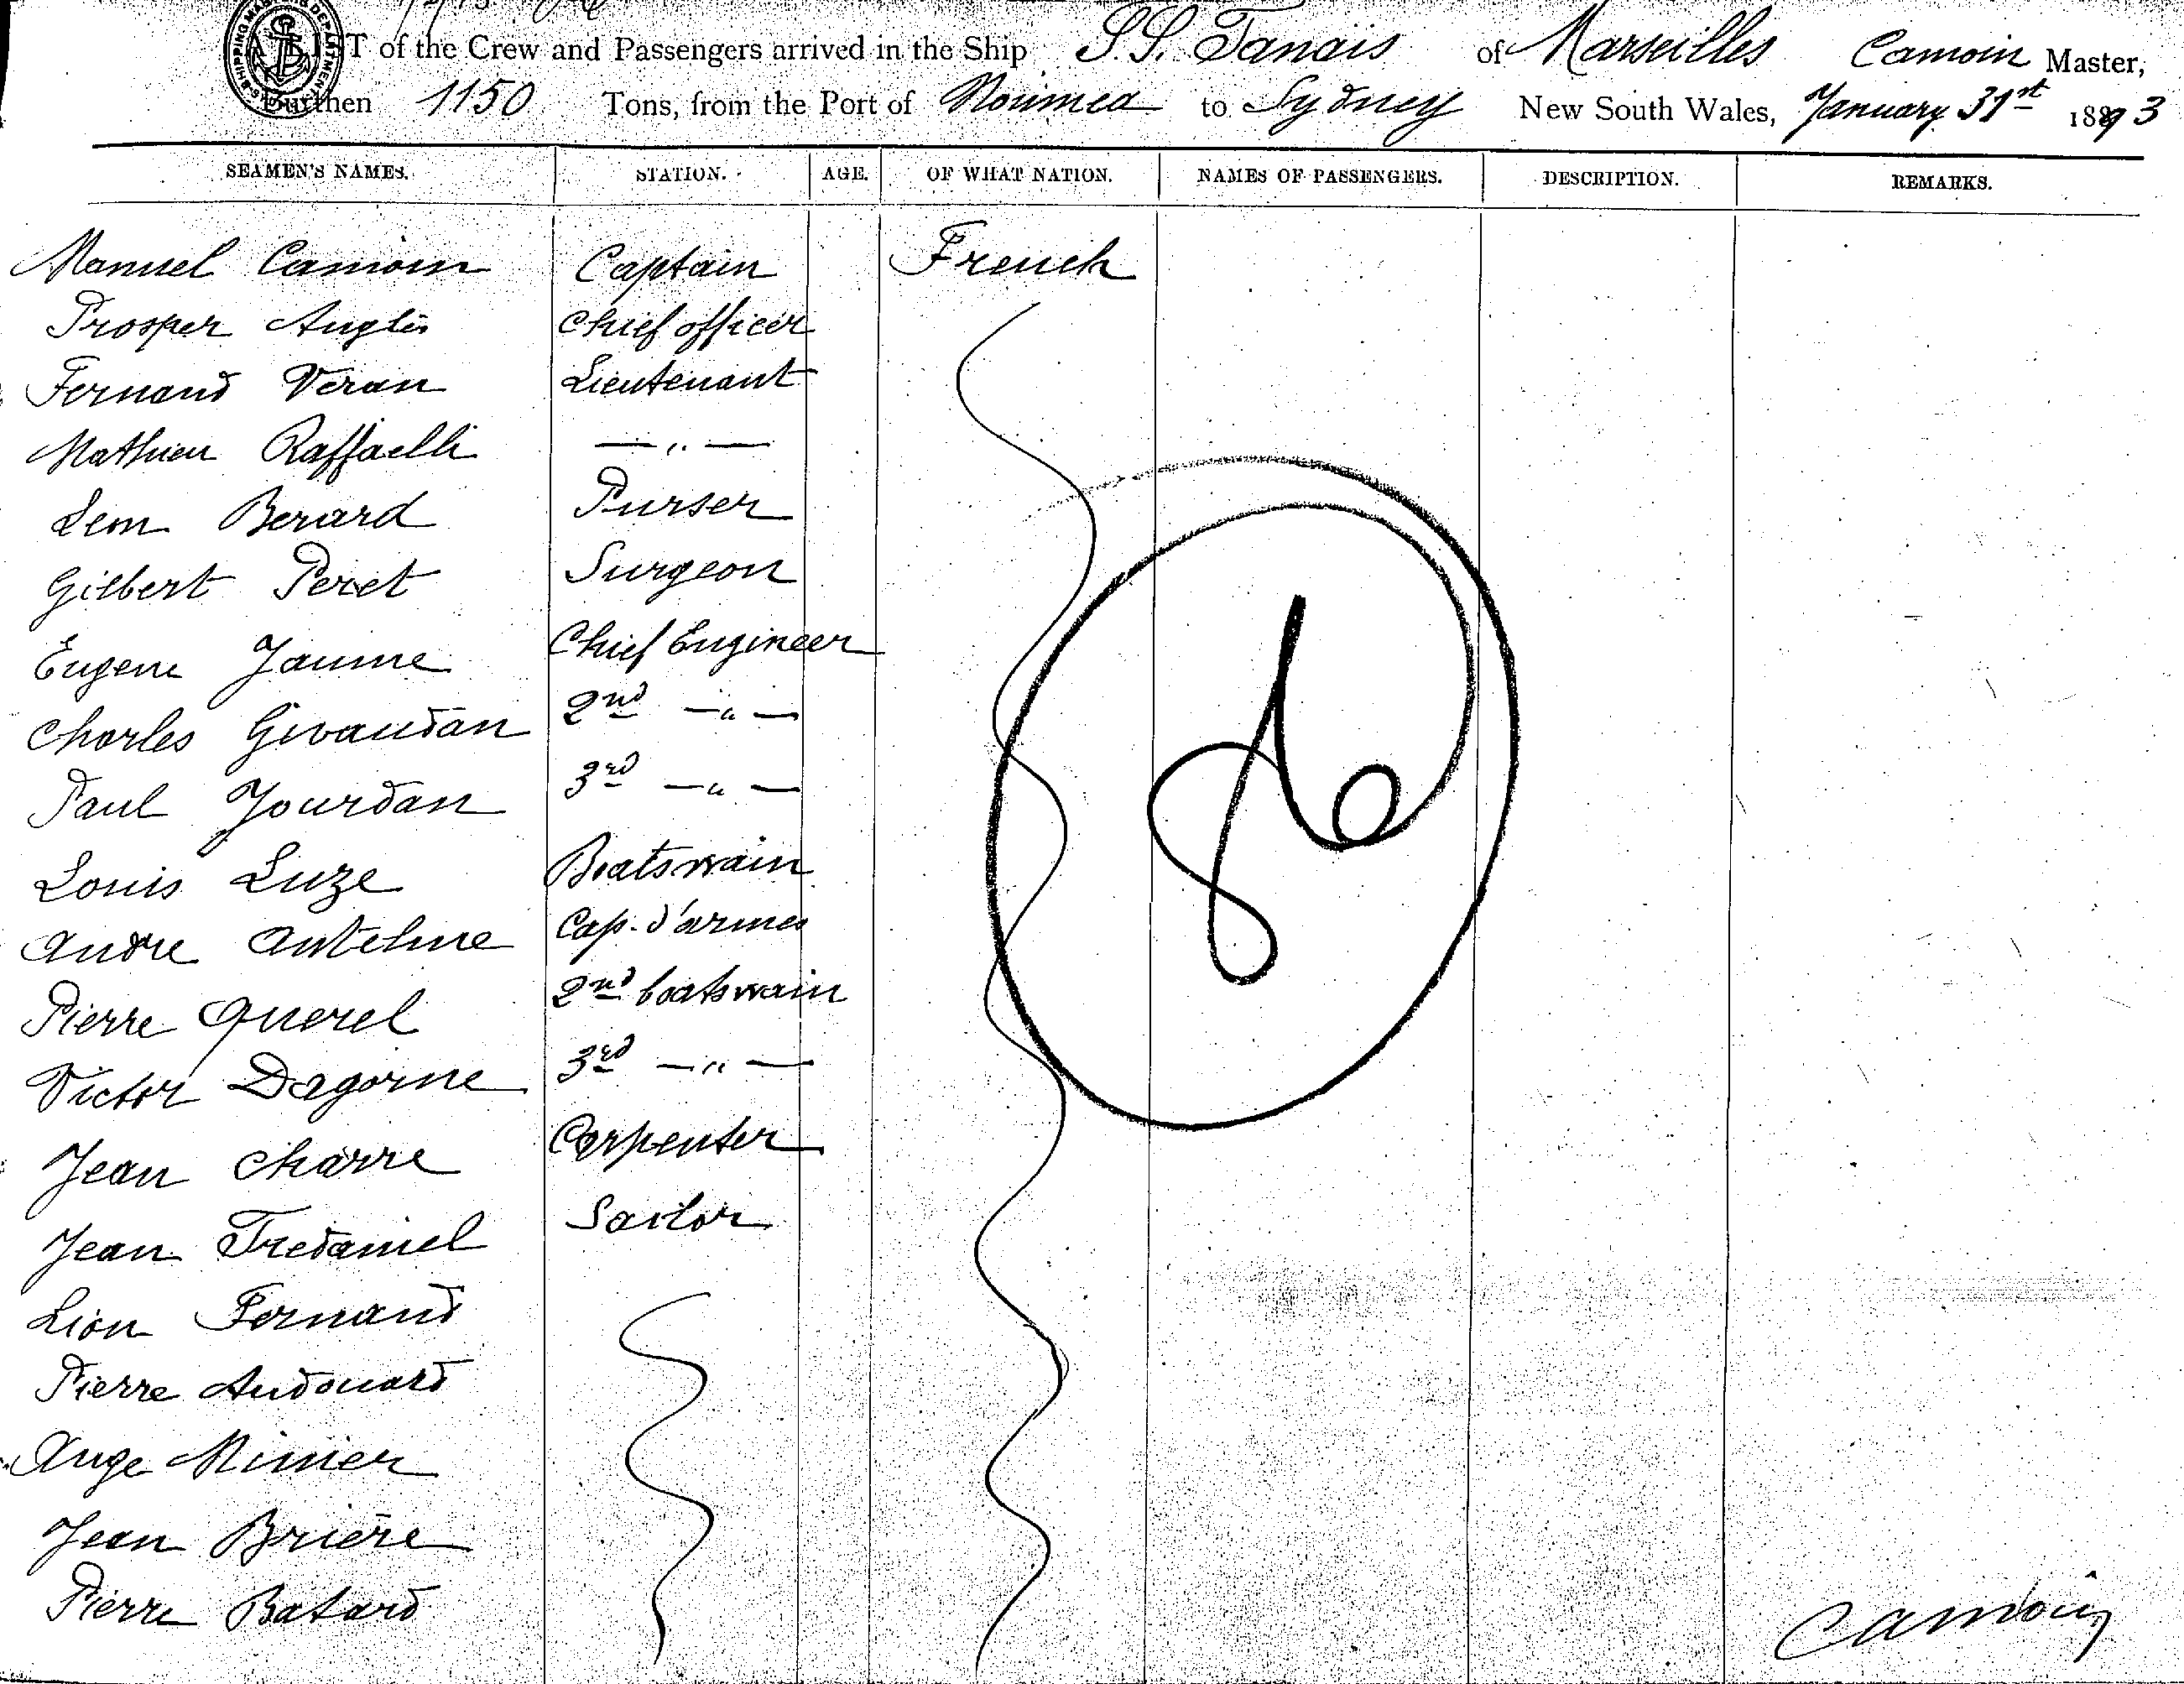 LIST of the Crew and Passengers arrived in the Ship S.S. Tanais of Marseilles Camoin Master,
Burthen 1150 Tons, from the Port of Noumea to Sydney New South Wales, January 31st 1893
SEAMEN'S NAMES. STATION. AGE. OF WHAT NATION. NAMES OF PASSENGERS. DESCRIPTION. REMARKS.
Manuel Camoin Captain French
Prosper Anglès Chief officer
Fernand Veran Lieutenant
Mathieu Raffaelli — " —
Leon Berard Purser
Gilbert Peret Surgeon
Eugene Jaume Chief Engineer
Charles Givaudan 2nd — " —
Paul Jourdan 3rd — " —
Louis Luze Boatswain
Andre Antelme Cap. d'armes
Pierre Querel 2nd boatswain
Victor Dagorne 3rd — " —
Jean Charre Carpenter
Jean Tredaniel Sailor
Lion Fernand
Pierre Audouard
Ange Minier
Jean Brière
Pierre Batard
Camoin